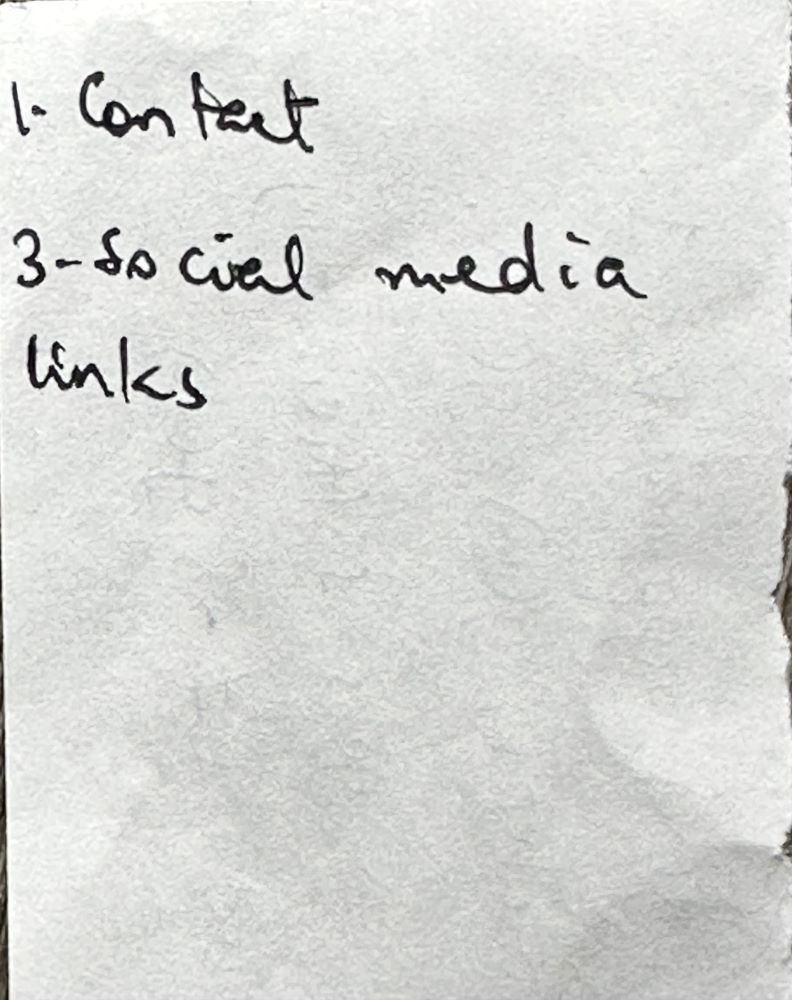 1- Contact
3- Social media
links